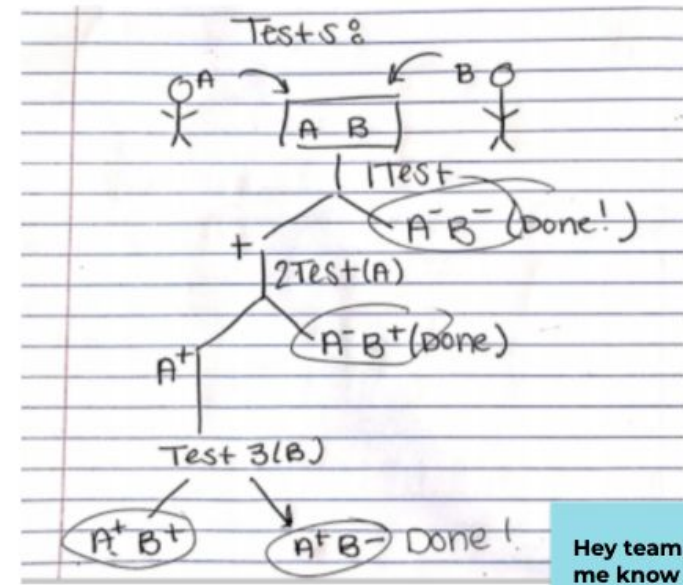 Tests:
A B
A B
1Test
A⁻B⁻ (Done!)
+
2Test(A)
A⁻B⁺ (Done)
A⁺
Test 3(B)
A⁺ B⁺ A⁺ B⁻ Done!
Hey team
me know